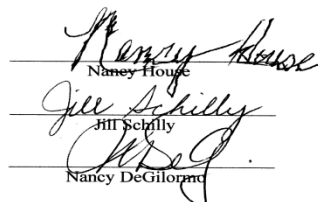 Nancy House
Nancy House
Jill Schilly
Jill Schilly
Nancy DeGilormo